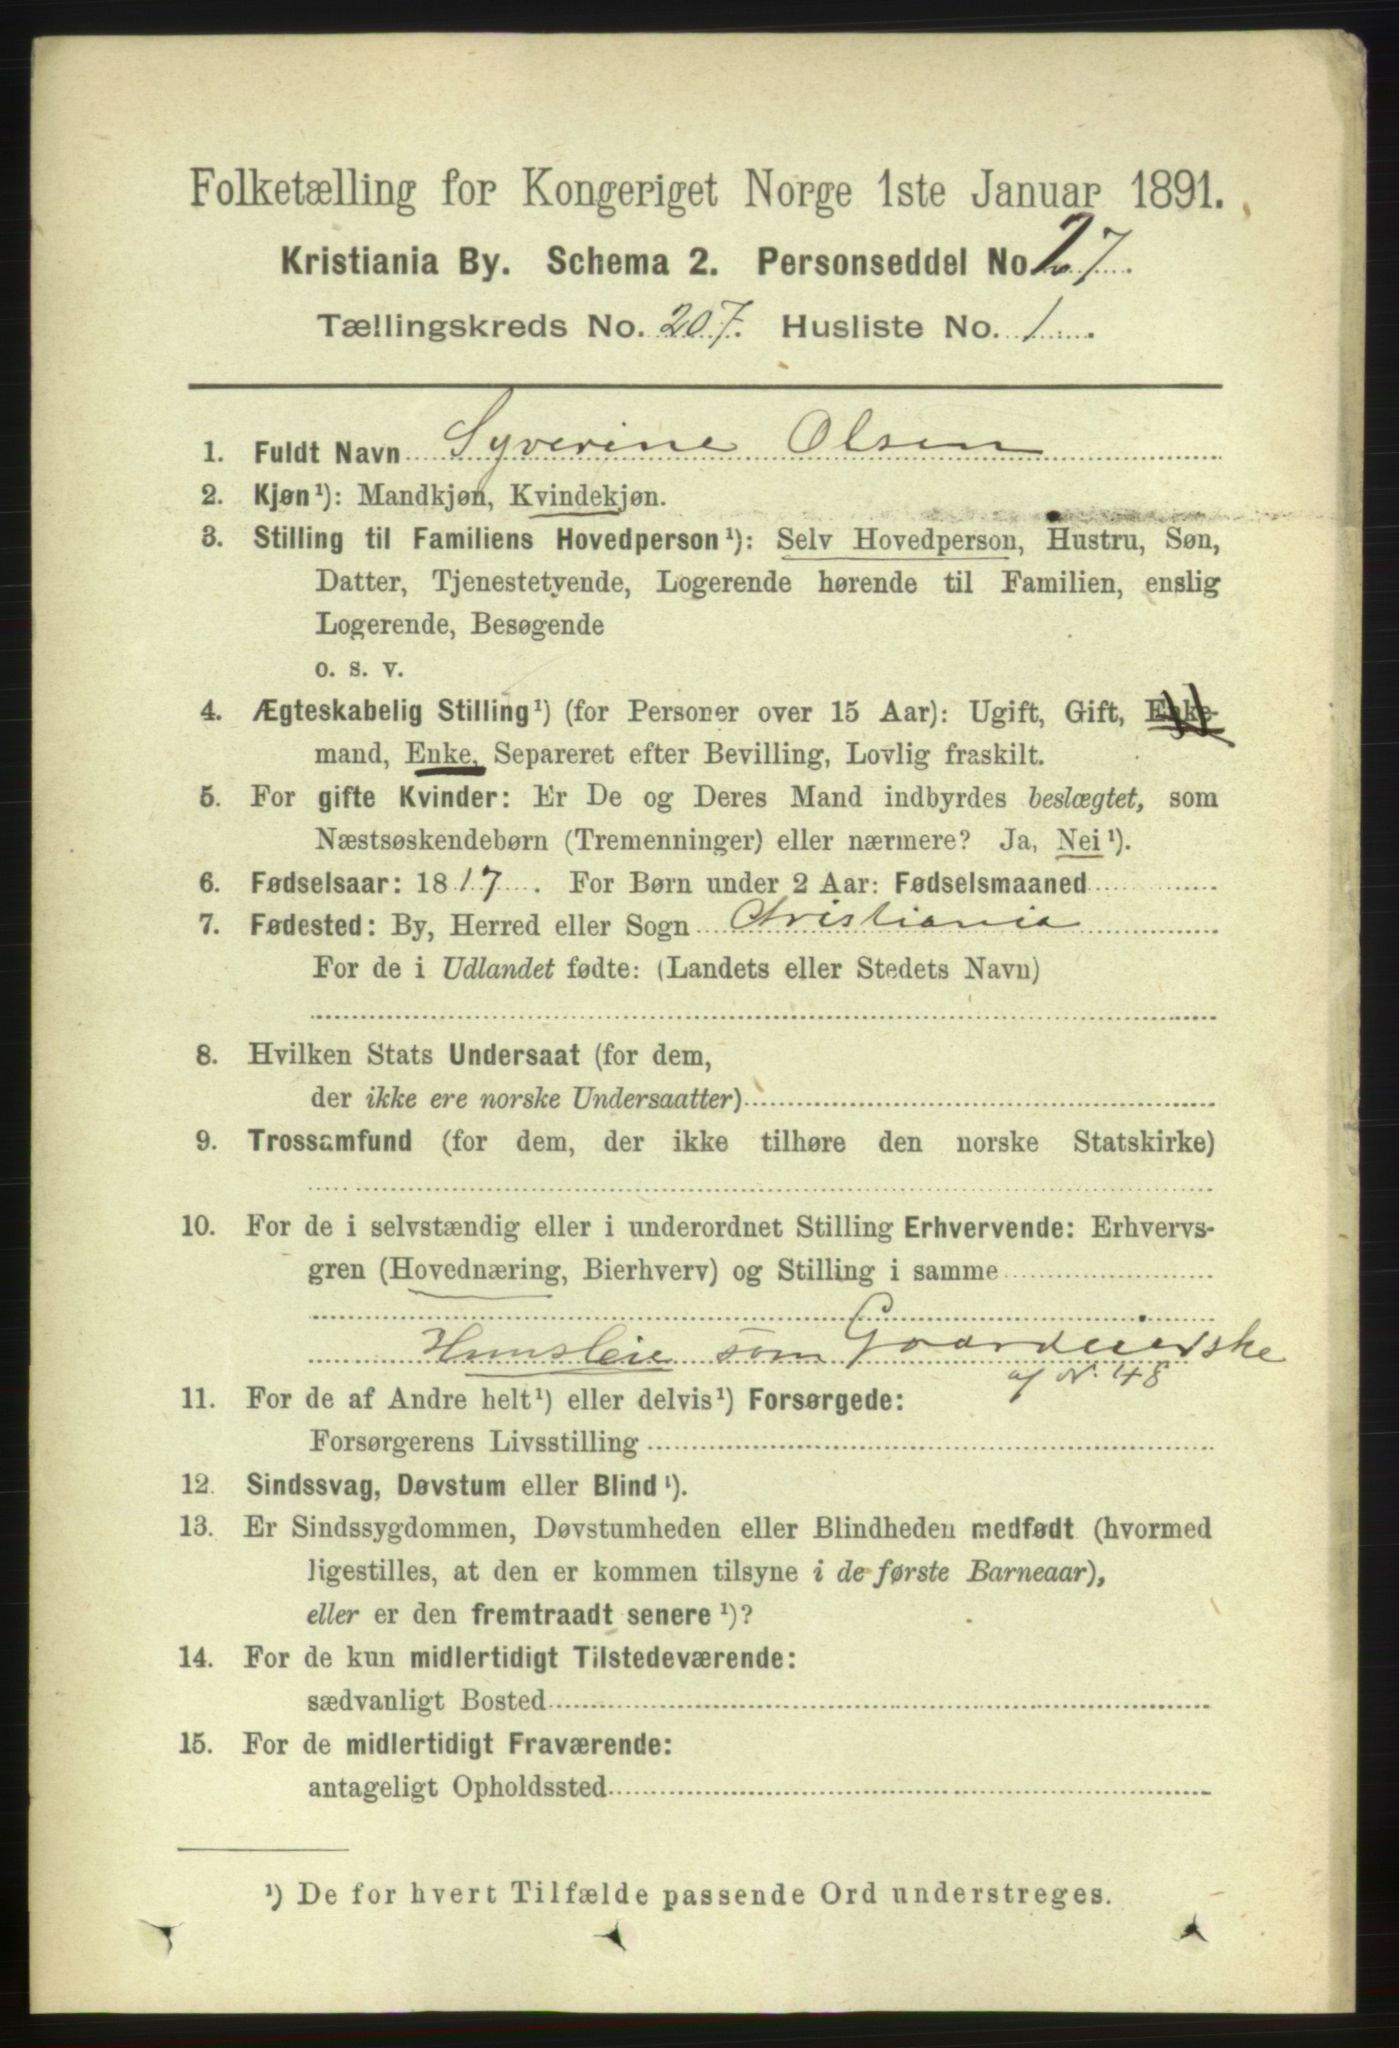 Folketælling for Kongeriget Norge 1ste Januar 1891.
Kristiania By. Schema 2. Personseddel No 27
Tællingskreds No. 207. Husliste No. 1
1. Fuldt Navn Syverine Olsen
2. Kjøn¹): Mandkjøn, Kvindekjøn.
3. Stilling til Familiens Hovedperson¹): Selv Hovedperson, Hustru, Søn,
Datter, Tjenestetyende, Logerende hørende til Familien, enslig
Logerende, Besøgende
o. s. v.
4. Ægteskabelig Stilling¹) (for Personer over 15 Aar): Ugift, Gift, Enke-
mand, Enke, Separeret efter Bevilling, Lovlig fraskilt.
5. For gifte Kvinder: Er De og Deres Mand indbyrdes beslægtet, som
Næstsøskendebørn (Tremenninger) eller nærmere? Ja, Nei¹).
6. Fødselsaar: 1817. For Børn under 2 Aar: Fødselsmaaned
7. Fødested: By, Herred eller Sogn Christiania
For de i Udlandet fødte: (Landets eller Stedets Navn)
8. Hvilken Stats Undersaat (for dem,
der ikke ere norske Undersaatter)
9. Trossamfund (for dem, der ikke tilhøre den norske Statskirke)
10. For de i selvstændig eller i underordnet Stilling Erhvervende: Erhvervs-
gren (Hovednæring, Bierhverv) og Stilling i samme
Huusleie som Gaardeierske
af N. 48
11. For de af Andre helt¹) eller delvis¹) Forsørgede:
Forsørgerens Livsstilling
12. Sindssvag, Døvstum eller Blind¹).
13. Er Sindssygdommen, Døvstumheden eller Blindheden medfødt (hvormed
ligestilles, at den er kommen tilsyne i de første Barneaar),
eller er den fremtraadt senere¹)?
14. For de kun midlertidigt Tilstedeværende:
sædvanligt Bosted
15. For de midlertidigt Fraværende:
antageligt Opholdssted
¹) De for hvert Tilfælde passende Ord understreges.